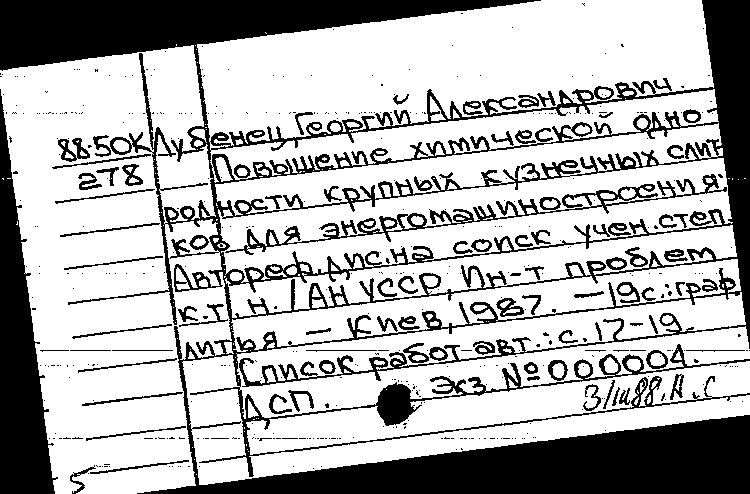 88-50К Лубенец, Георгий Александрович.
278 Повышение химической одно-
родности крупных кузнечных слит-
ков для энергомашиностроения:
Автореф. дис. на соиск. учен. степ.
к.т.н. / АН УССР, Ин-т проблем
литья. — Киев, 1987. — 19с.: граф.
Список работ авт.: с. 17-19.
ДСП. Экз. № 000004.
3/III88. Н. С.
5